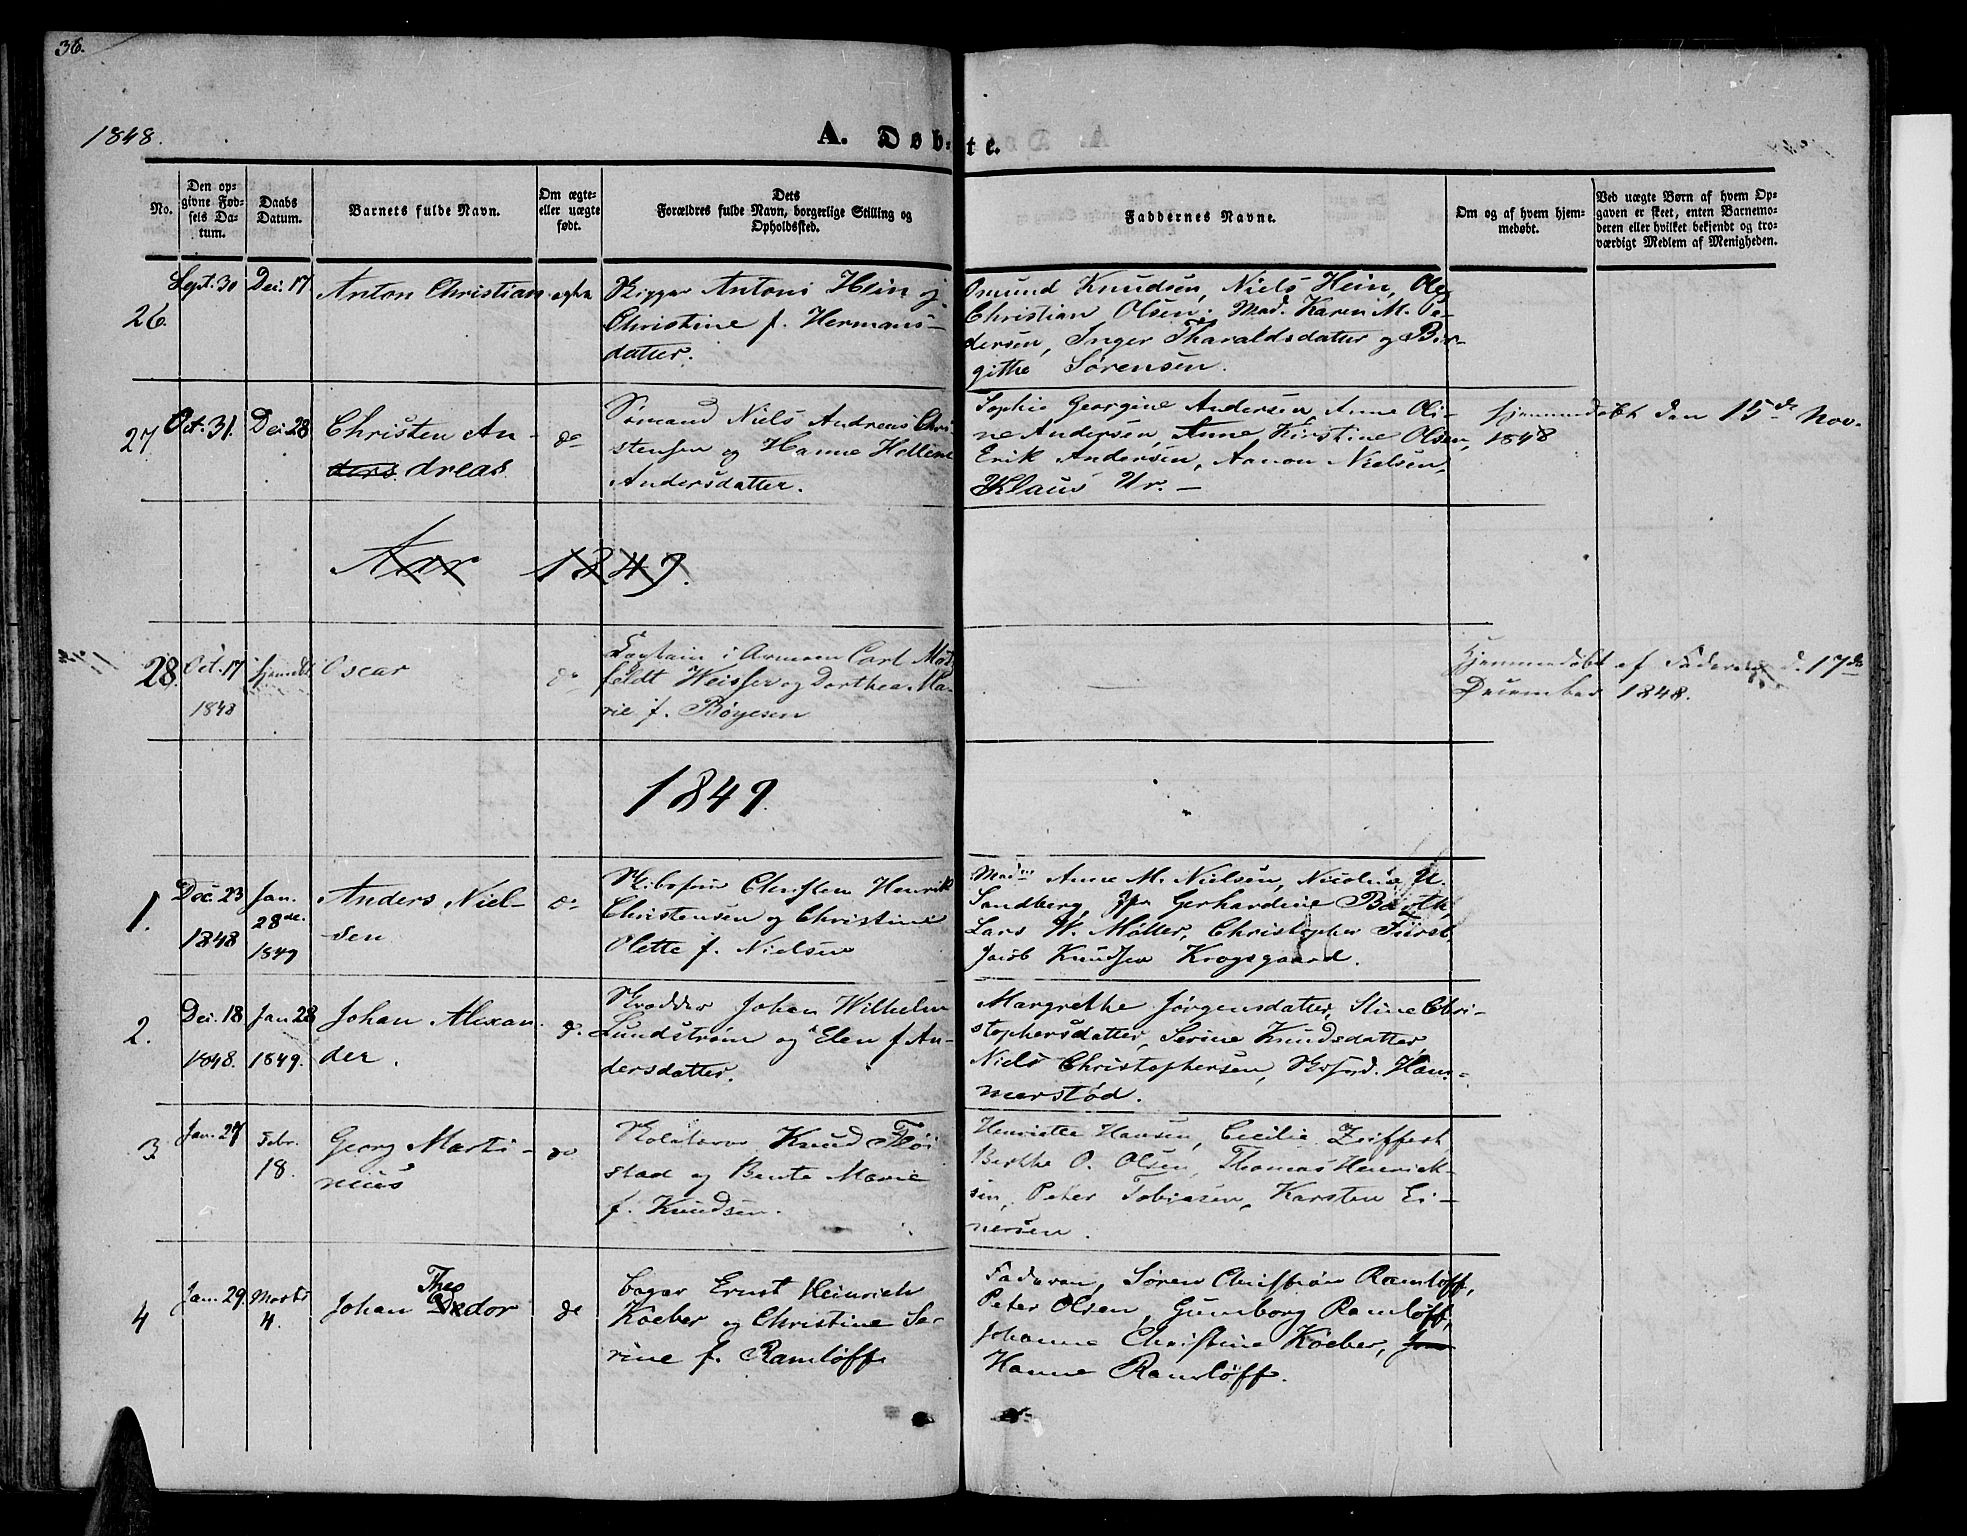 36.
1848.
A. Døbte.
No.
Den op-
givne Fød-
sels Da-
tum.
Daabs
Datum.
Barnets fulde Navn.
Om ægte-
eller uægte
født.
Dets
Forældres fulde Navn, borgerlige Stilling og
Opholdssted.
Faddernes Navne.
Om og af hvem hjem-
medøbt.
Ved uægte Børn af hvem Op-
gaven er skeet, enten Barnemo-
deren eller hvilket bekjendt og tro-
værdigt Medlem af Menigheden.
26.
Sept. 30
Dec. 17
Anton Christian
ægte
Rigger Antoni Hein og
Christine f. Hermans-
datter.
Osmund Knudsen, Niels Hein, Ole
Christian Olsen. Mad. Karen M. Pe-
dersen, Inger Tharaldsdatter og Bir-
githe Sørensen.
27
Oct. 31.
Dec. 28
Christen An-
ders dreas.
do
Sømand Niels Andreas Chri-
stensen og Hanne Helline
Andersdatter.
Sophie Georgine Andersen, Anne Oli-
ne Andersen, Anne Kirstine Olsen,
Erik Andersen, Aanon Nielsen,
Klaus Ur. —
Hjemmedøbt den 15de Nov.
1848
Aar 1849.
28.
Oct. 17
1848
Hjemdbt
Oscar
do
Captain i Armeen Carl Mot
feldt Weisser og Dorthea Ma-
rie f. Bøyesen
Hjemmedøbt af Faderen d. 17de
December 1848.
1849.
1.
Dec. 23
1848
Jan.
28de.
1849
Anders Niel-
sen
do
Skibsfører Christen Henrik
Christensen og Christine
Olette f. Nielsen
Mad. Anne M. Nielsen, Nicoline U.
Sandberg, Jfr Gerhardine Booth,
Lars W. Møller, Christopher Fürst,
Jacob Knudsen Krogsgaard.
2.
Dec. 18
1848.
Jan 28
1849.
Johan Alexan-
der.
do
Skrædder Johan Wilhelm
Lundstrøm og Elen f. An-
dersdatter.
Margrethe Jørgensdatter, Stine Chri-
stophersdatter, Serine Knudsdatter,
Niels Christophersen, Ham-
merstød.
3
Jan. 27
Febr.
18.
Georg Marti-
nius
do
Knud Fløi
stad og Bente Marie
f. Knudsen.
Henriette Hansen, Cecilie Zeiffert,
Berthe O. Olsen, Thomas Henrick-
sen, Peter Tobiasen, Karsten Ei-
nersen.
4
Jan. 29.
Marts
4.
Theo
Johan dor
do
Bager Ernst Heinrich
Koeber og Christine Se-
rine f. Ramløff
Faderen, Søren Christian Ramløff,
Peter Olsen, Gumborg Ramløff,
Johanne Christine Koeber,
Hanne Ramløff.